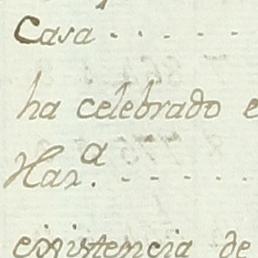 Casa . . . . . .
ha celebrado e
Has.ª - - - - -
existencia de